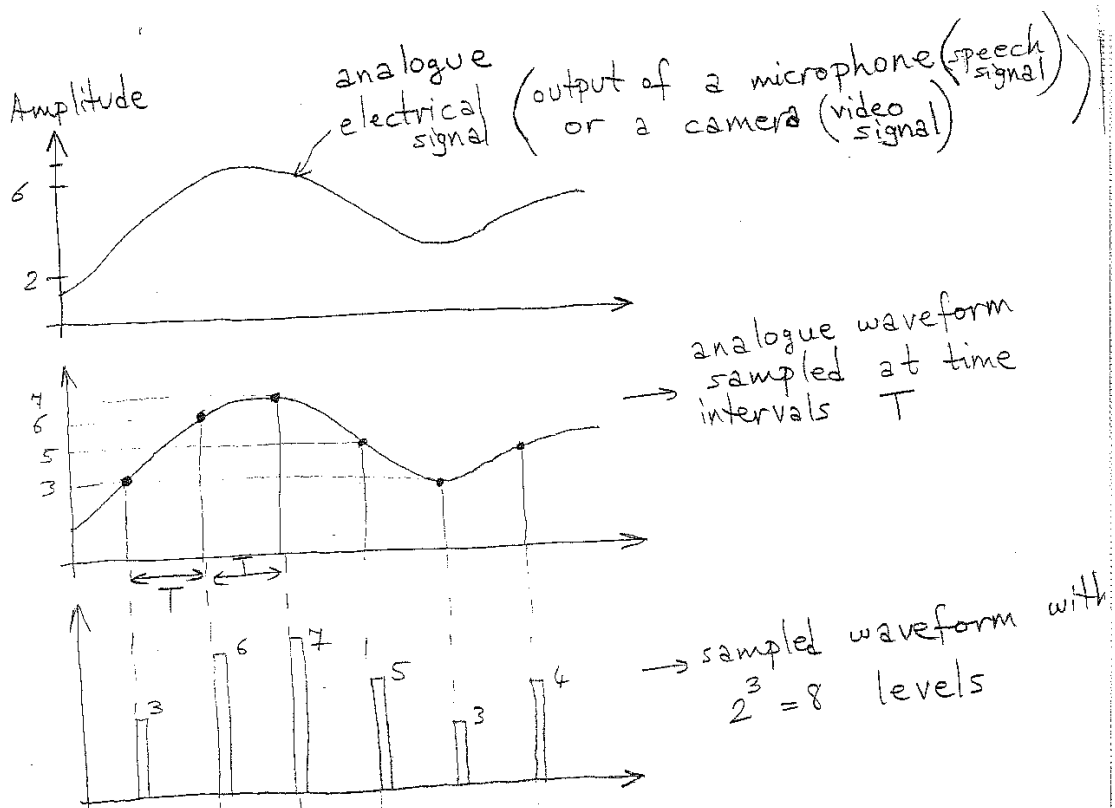 Amplitude
analogue
electrical
signal
(output of a microphone (speech signal)
or a camera (video signal))
6
2
analogue waveform
sampled at time
intervals T
7
6
5
3
T
T
3
6
7
5
3
4
sampled waveform with
2³ = 8 levels